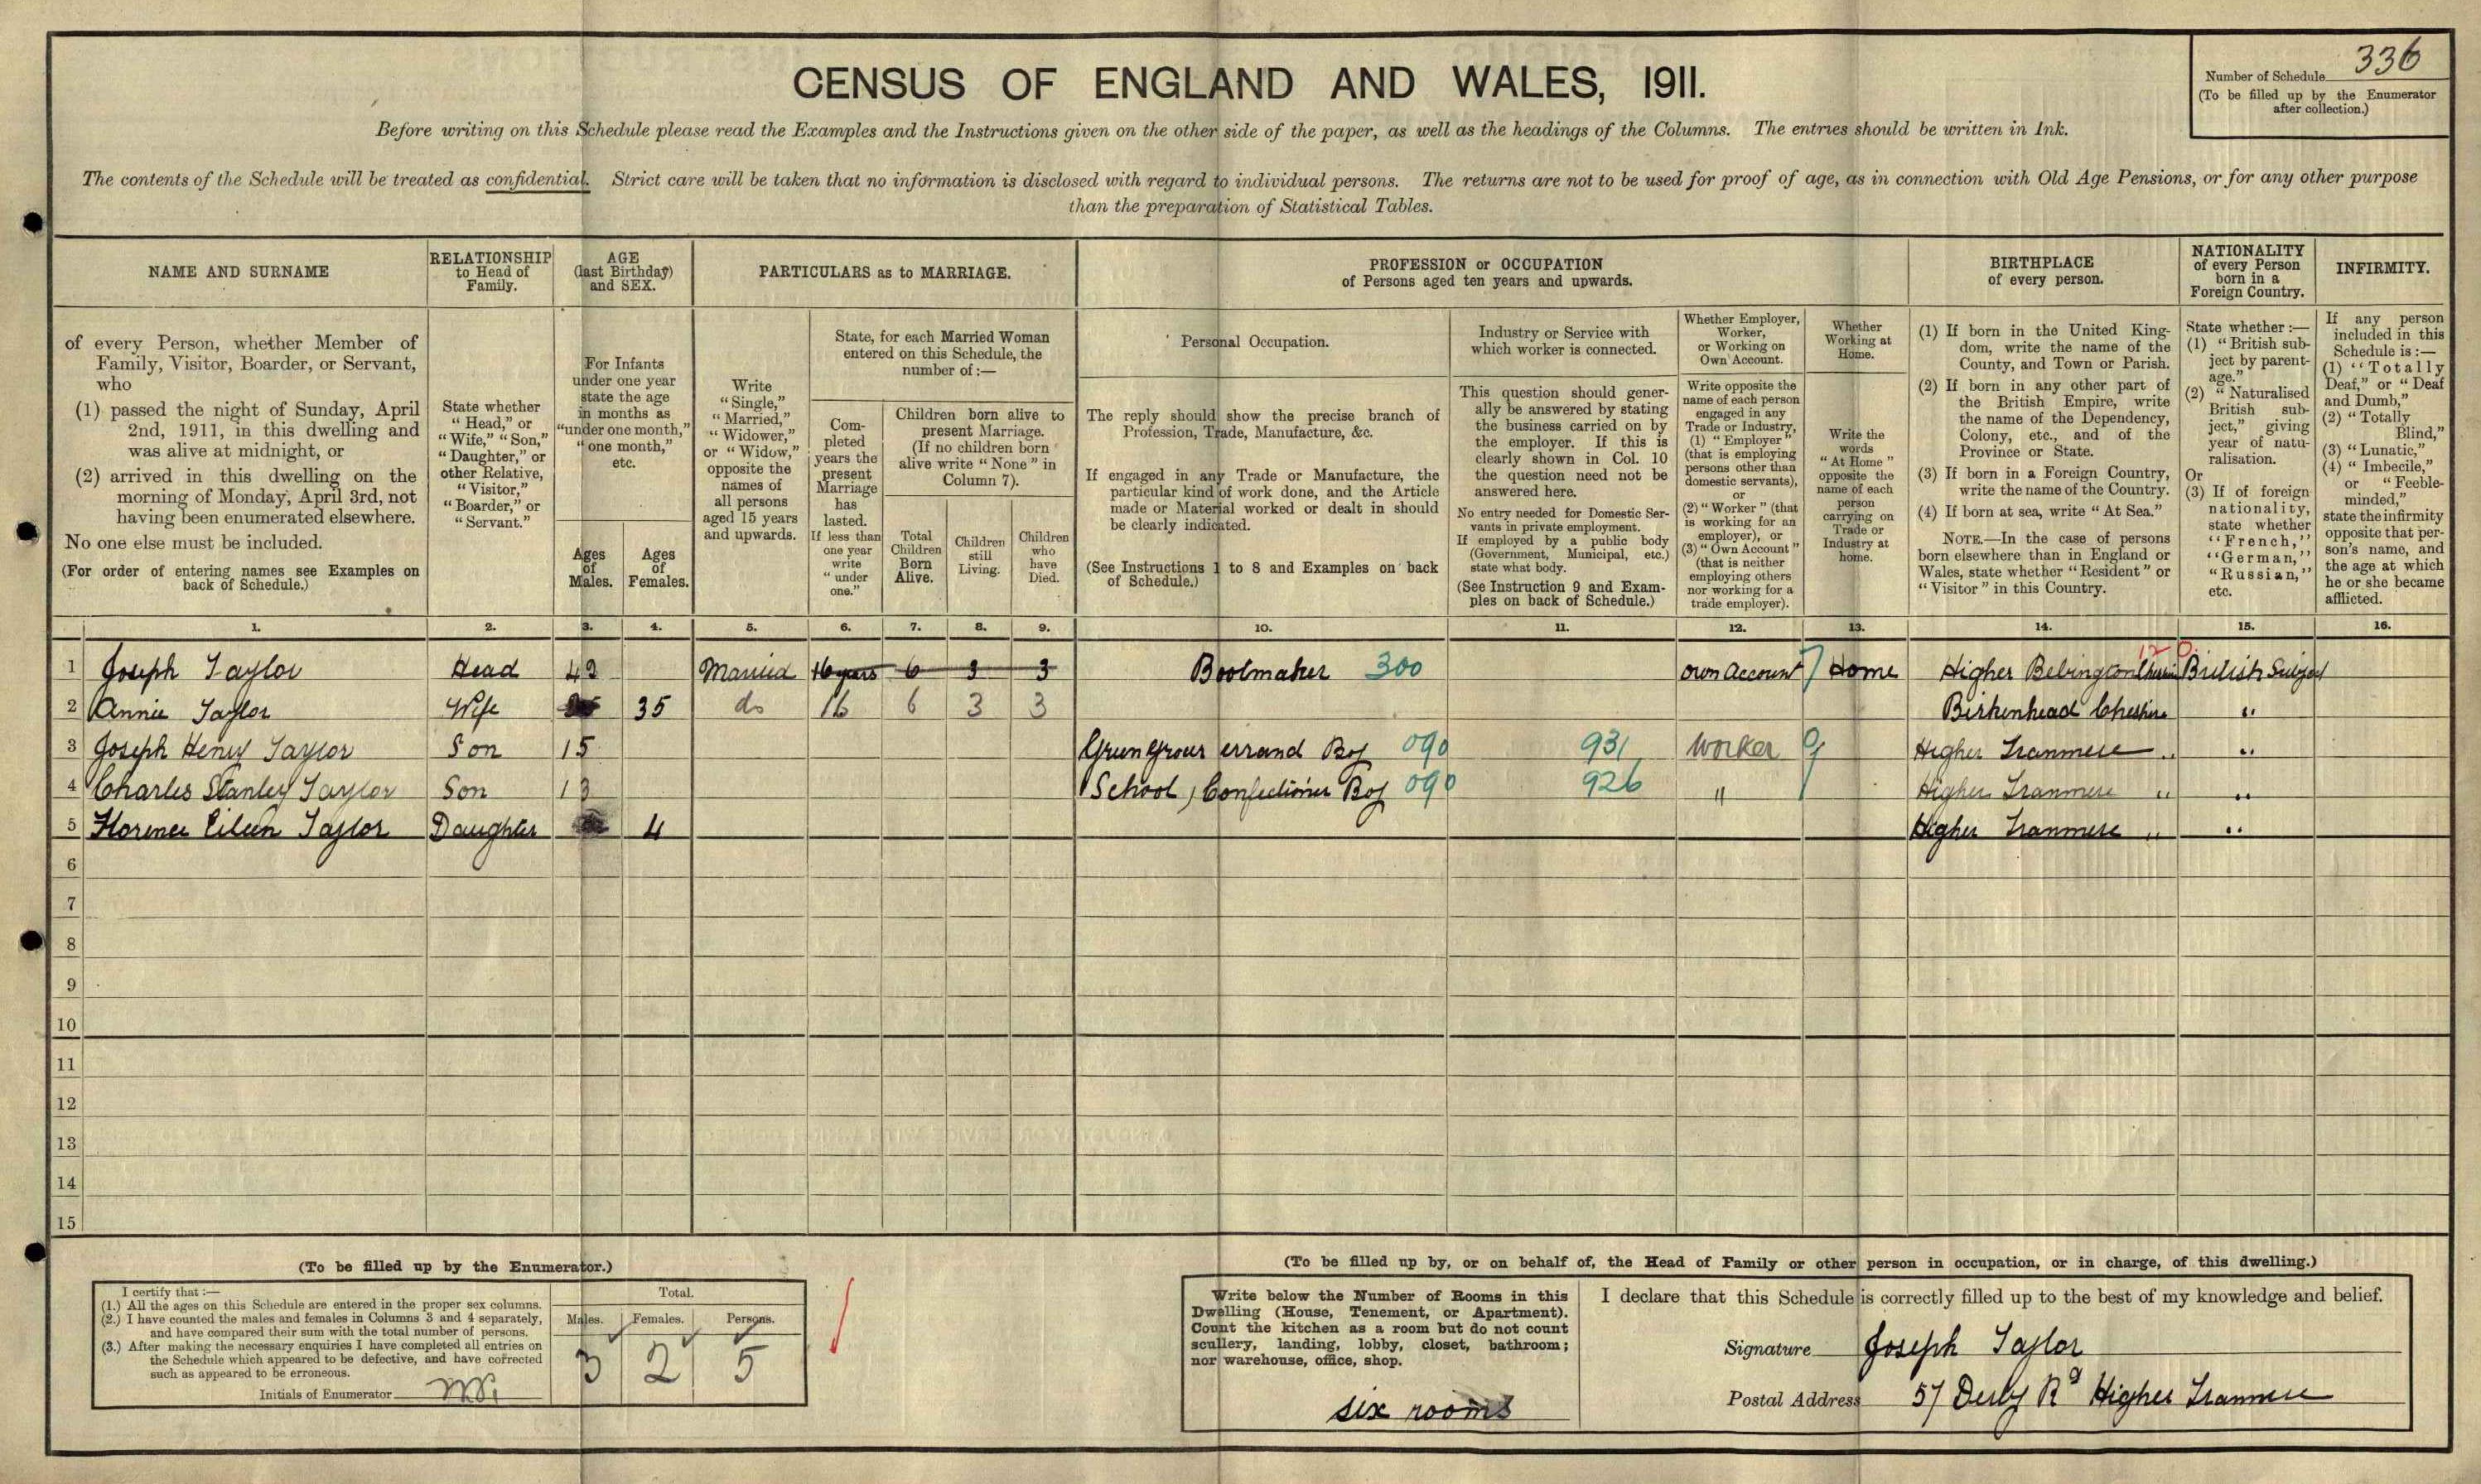 336
Number of Schedule
(To be filled up by the Enumerator
after collection.)
CENSUS OF ENGLAND AND WALES, 1911.
Before writing on this Schedule please read the Examples and the Instructions given on the other side of the paper, as well as the headings of the Columns. The entries should be written in Ink.
The contents of the Schedule will be treated as confidential. Strict care will be taken that no information is disclosed with regard to individual persons. The returns are not to be used for proof of age, as in connection with Old Age Pensions, or for any other purpose
than the preparation of Statistical Tables.
NAME AND SURNAME
of every Person, whether Member of
Family, Visitor, Boarder, or Servant,
who
(1) passed the night of Sunday, April
2nd, 1911, in this dwelling and
was alive at midnight, or
(2) arrived in this dwelling on the
morning of Monday, April 3rd, not
having been enumerated elsewhere.
No one else must be included.
(For order of entering names see Examples on
back of Schedule.)
RELATIONSHIP
to Head of
Family.
State whether
"Head," or
"Wife," "Son,"
"Daughter," or
other Relative,
"Visitor,"
"Boarder," or
"Servant."
AGE
(last Birthday)
and SEX.
For Infants
under one year
state the age
in months as
"under one month,"
"one month,"
etc.
Ages
of
Males.
Ages
of
Females.
PARTICULARS as to MARRIAGE.
Write
"Single,"
"Married,"
"Widower,"
or "Widow,"
opposite the
names of
all persons
aged 15 years
and upwards.
State, for each Married Woman
entered on this Schedule, the
number of:—
Com-
pleted
years the
present
Marriage
has
lasted.
If less than
one year
write
"under
one."
Children born alive to
present Marriage.
(If no children born
alive write "None" in
Column 7).
Total
Children
Born
Alive.
Children
still
Living.
Children
who
have
Died.
PROFESSION or OCCUPATION
of Persons aged ten years and upwards.
Personal Occupation.
The reply should show the precise branch of
Profession, Trade, Manufacture, &c.
If engaged in any Trade or Manufacture, the
particular kind of work done, and the Article
made or Material worked or dealt in should
be clearly indicated.
(See Instructions 1 to 8 and Examples on back
of Schedule.)
Industry or Service with
which worker is connected.
This question should gener-
ally be answered by stating
the business carried on by
the employer. If this is
clearly shown in Col. 10
the question need not be
answered here.
No entry needed for Domestic Ser-
vants in private employment.
If employed by a public body
(Government, Municipal, etc.)
state what body.
(See Instruction 9 and Exam-
ples on back of Schedule.)
Whether Employer,
Worker,
or Working on
Own Account.
Write opposite the
name of each person
engaged in any
Trade or Industry,
(1) "Employer"
(that is employing
persons other than
domestic servants),
or
(2) "Worker" (that
is working for an
employer), or
(3) "Own Account"
(that is neither
employing others
nor working for a
trade employer).
Whether
Working at
Home.
Write the
words
"At Home"
opposite the
name of each
person
carrying on
Trade or
Industry at
home.
BIRTHPLACE
of every person.
(1) If born in the United King-
dom, write the name of the
County, and Town or Parish.
(2) If born in any other part of
the British Empire, write
the name of the Dependency,
Colony, etc., and of the
Province or State.
(3) If born in a Foreign Country,
write the name of the Country.
(4) If born at sea, write "At Sea."
NOTE.—In the case of persons
born elsewhere than in England or
Wales, state whether "Resident" or
"Visitor" in this Country.
NATIONALITY
of every Person
born in a
Foreign Country.
State whether:—
(1) "British sub-
ject by parent-
age."
(2) "Naturalised
British sub-
ject," giving
year of natu-
ralisation.
Or
(3) If of foreign
nationality,
state whether
"French,"
"German,"
"Russian,"
etc.
INFIRMITY.
If any person
included in this
Schedule is:—
(1) "Totally
Deaf," or "Deaf
and Dumb,"
(2) "Totally
Blind,"
(3) "Lunatic,"
(4) "Imbecile,"
or "Feeble-
minded,"
state the infirmity
opposite that per-
son's name, and
the age at which
he or she became
afflicted.
1. 2. 3. 4. 5. 6. 7. 8. 9. 10. 11. 12. 13. 14. 15. 16.
1 Joseph Taylor Head 43 Married 16 years 6 3 3 Bootmaker 300 own Account 7 Home Higher Bebington Cheshire British Subject
2 Annie Taylor Wife 35 do 16 6 3 3 Birkenhead Cheshire "
3 Joseph Henry Taylor Son 15 Grun Grocer errand Boy 090 931 Worker Higher Tranmere " "
4 Charles Stanley Taylor Son 13 School, Confectioner Boy 090 926 " Higher Tranmere " "
5 Florence Eileen Taylor Daughter 4 Higher Tranmere " "
6
7
8
9
10
11
12
13
14
15
(To be filled up by the Enumerator.)
I certify that:—
(1.) All the ages on this Schedule are entered in the proper sex columns.
(2.) I have counted the males and females in Columns 3 and 4 separately,
and have compared their sum with the total number of persons.
(3.) After making the necessary enquiries I have completed all entries on
the Schedule which appeared to be defective, and have corrected
such as appeared to be erroneous.
Initials of Enumerator
Total.
Males. Females. Persons.
3 2 5
(To be filled up by, or on behalf of, the Head of Family or other person in occupation, or in charge, of this dwelling.)
Write below the Number of Rooms in this
Dwelling (House, Tenement, or Apartment).
Count the kitchen as a room but do not count
scullery, landing, lobby, closet, bathroom;
nor warehouse, office, shop.
six rooms
I declare that this Schedule is correctly filled up to the best of my knowledge and belief.
Signature Joseph Taylor
Postal Address 57 Derby Rd Higher Tranmere